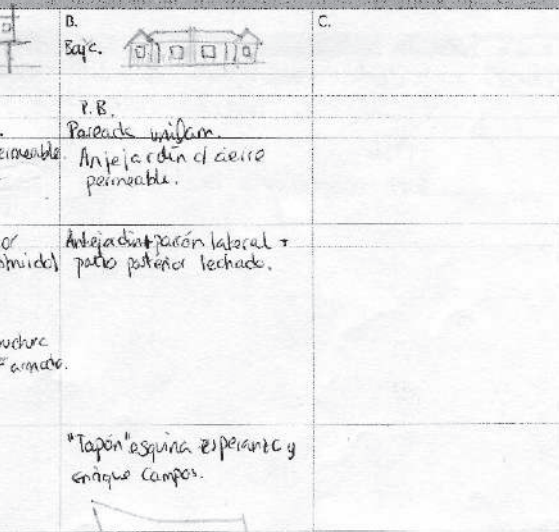 B.
C.
Baje.
P.B.
Pareada unifam.
ermeable. Antejardín c/ cierre
permeable.
or Antejardin + patión lateral +
struido) patio posterior techado.
uctura
armado.
"Tapón" esquina esperanza y
enrique campos.